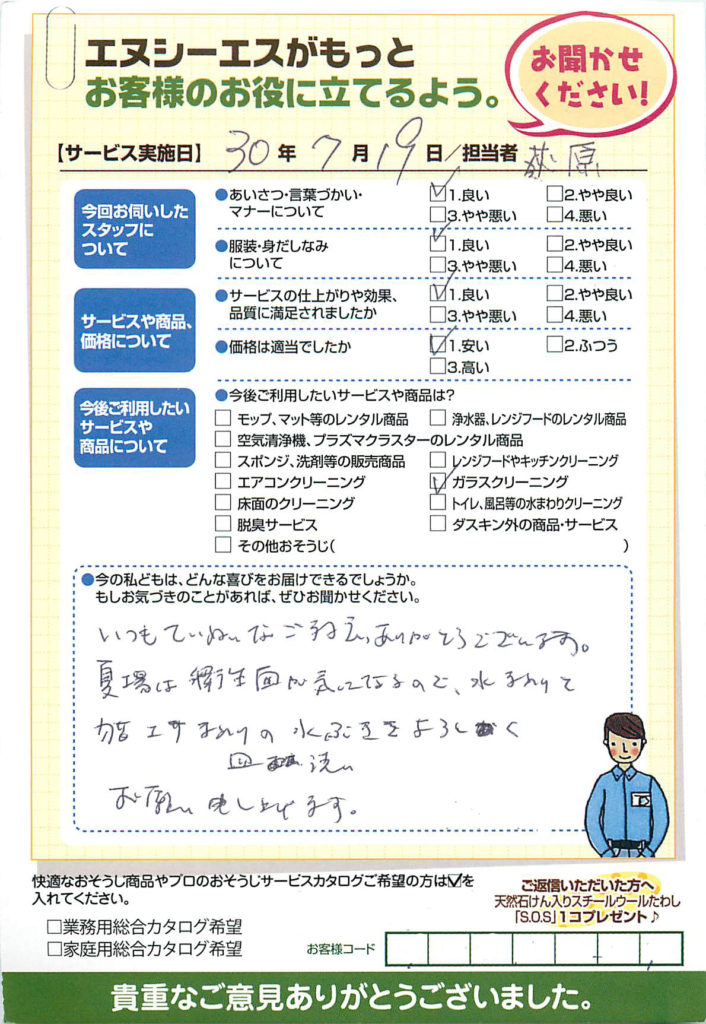 エヌシーエスがもっと
お客様のお役に立てるよう。
お聞かせ
ください!
【サービス実施日】 30年 7月 19日/担当者 萩原
今回お伺いした
スタッフに
ついて
●あいさつ・言葉づかい・
マナーについて
□1.良い □2.やや良い
□3.やや悪い □4.悪い
●服装・身だしなみ
について
□1.良い □2.やや良い
□3.やや悪い □4.悪い
サービスや商品、
価格について
●サービスの仕上がりや効果、
品質に満足されましたか
□1.良い □2.やや良い
□3.やや悪い □4.悪い
●価格は適当でしたか
□1.安い □2.ふつう
□3.高い
今後ご利用したい
サービスや
商品について
●今後ご利用したいサービスや商品は?
□ モップ、マット等のレンタル商品 □ 浄水器、レンジフードのレンタル商品
□ 空気清浄機、プラズマクラスターのレンタル商品
□ スポンジ、洗剤等の販売商品 □ レンジフードやキッチンクリーニング
□ エアコンクリーニング □ ガラスクリーニング
□ 床面のクリーニング □ トイレ、風呂等の水まわりクリーニング
□ 脱臭サービス □ ダスキン外の商品・サービス
□ その他おそうじ( )
●今の私どもは、どんな喜びをお届けできるでしょうか。
もしお気づきのことがあれば、ぜひお聞かせください。
いつもていねいなご対応ありがとうございます。
夏場は衛生面が気になるので、水まわりと
まわりの水ぶきをよろしく
洗い
お願い申し上げます。
快適なおそうじ商品やプロのおそうじサービスカタログご希望の方は☑を
入れてください。
□業務用総合カタログ希望
□家庭用総合カタログ希望
お客様コード
ご返信いただいた方へ
天然石けん入りスチールウールたわし
「S.O.S」1コプレゼント♪
貴重なご意見ありがとうございました。